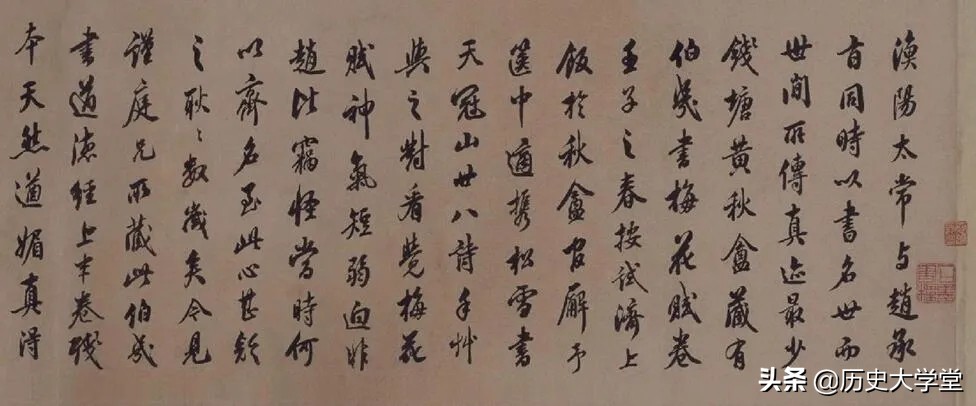 渔陽太常与趙承
旨同時以書名世而
世間所傳真迹最少
錢塘黄秋盦藏有
伯幾書梅花賦卷
壬子之春按試濟上
飯於秋盦官廨予
篋中適攜松雪書
天冠山廿八詩手艸
與之對看覺梅花
賦神氣短弱迥非
趙比竊怪當時何
以齊名至此心甚疑
之耿〻數歲矣今見
謹庭兄所藏此伯幾
書道德經上半卷殘
本天然遒媚真得
头条 @历史大学堂